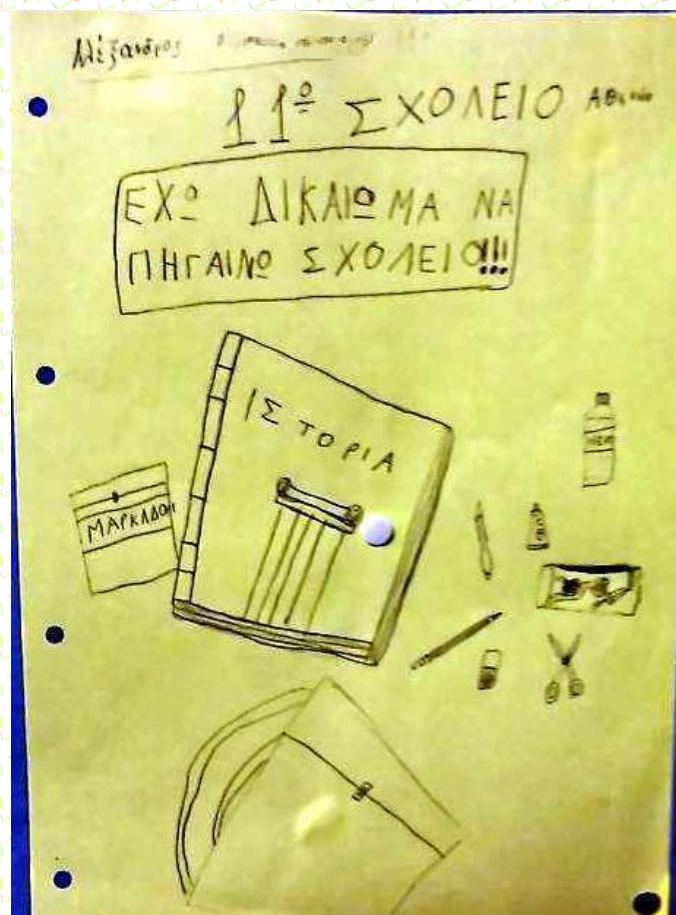 Αλέξανδρος
11º ΣΧΟΛΕΙΟ
ΕΧΩ ΔΙΚΑΙΩΜΑ ΝΑ
ΠΗΓΑΙΝΩ ΣΧΟΛΕΙΟ!!!
ΙΣΤΟΡΙΑ
ΝΕΡΟ
ΜΑΡΚΑΔΟΡ